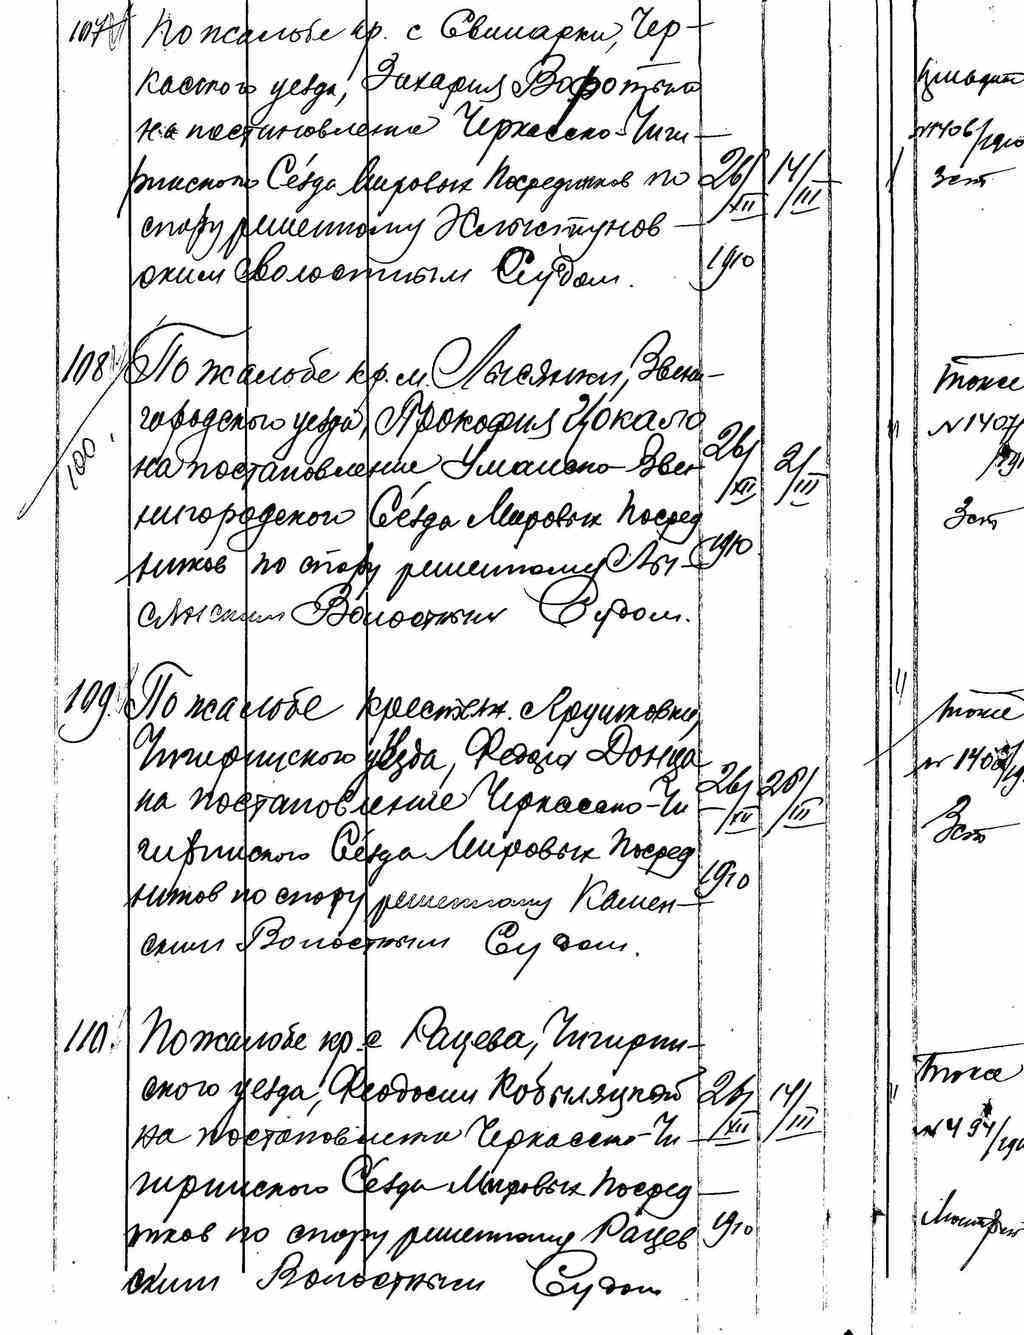 107 По жалобе кр. с Свинарки, Чер-
касского уезда, Захария
на постановление Черкасско-Чиги-
ринского Съезда Мировых Посредников по
спору решенному Хлыстунов-
ским Волостным Судом.
26/XII 14/III
1910
Зст
108 По жалобе кр. м. Лысянки, Звени-
городского уезда, Прокофия Цокало
на постановление Уманско-Звени-
нигородского Съезда Мировых Посред
ников по спору решенному Лы-
сянским Волостным Судом.
100
26/XII 2/III
1910
тоже
№ 1407/
Зст
109. По жалобе крестьян.
Чигиринского уезда, Донца
на постановление Черкасско-Чи-
гиринского Съезда Мировых Посред
ников по спору решенному Камен-
ским Волостным Судом.
26/XII 28/III
1910
тоже
Зст
110. По жалобе кр. с Рацева, Чигирин-
ского уезда, Феодосии Кобыляцкой
на постановление Черкасско-Чи-
гиринского Съезда Мировых Посред-
ников по спору решенному Рацев
ским Волостным Судом
26/XII 14/III
1910
тоже
№ 494/